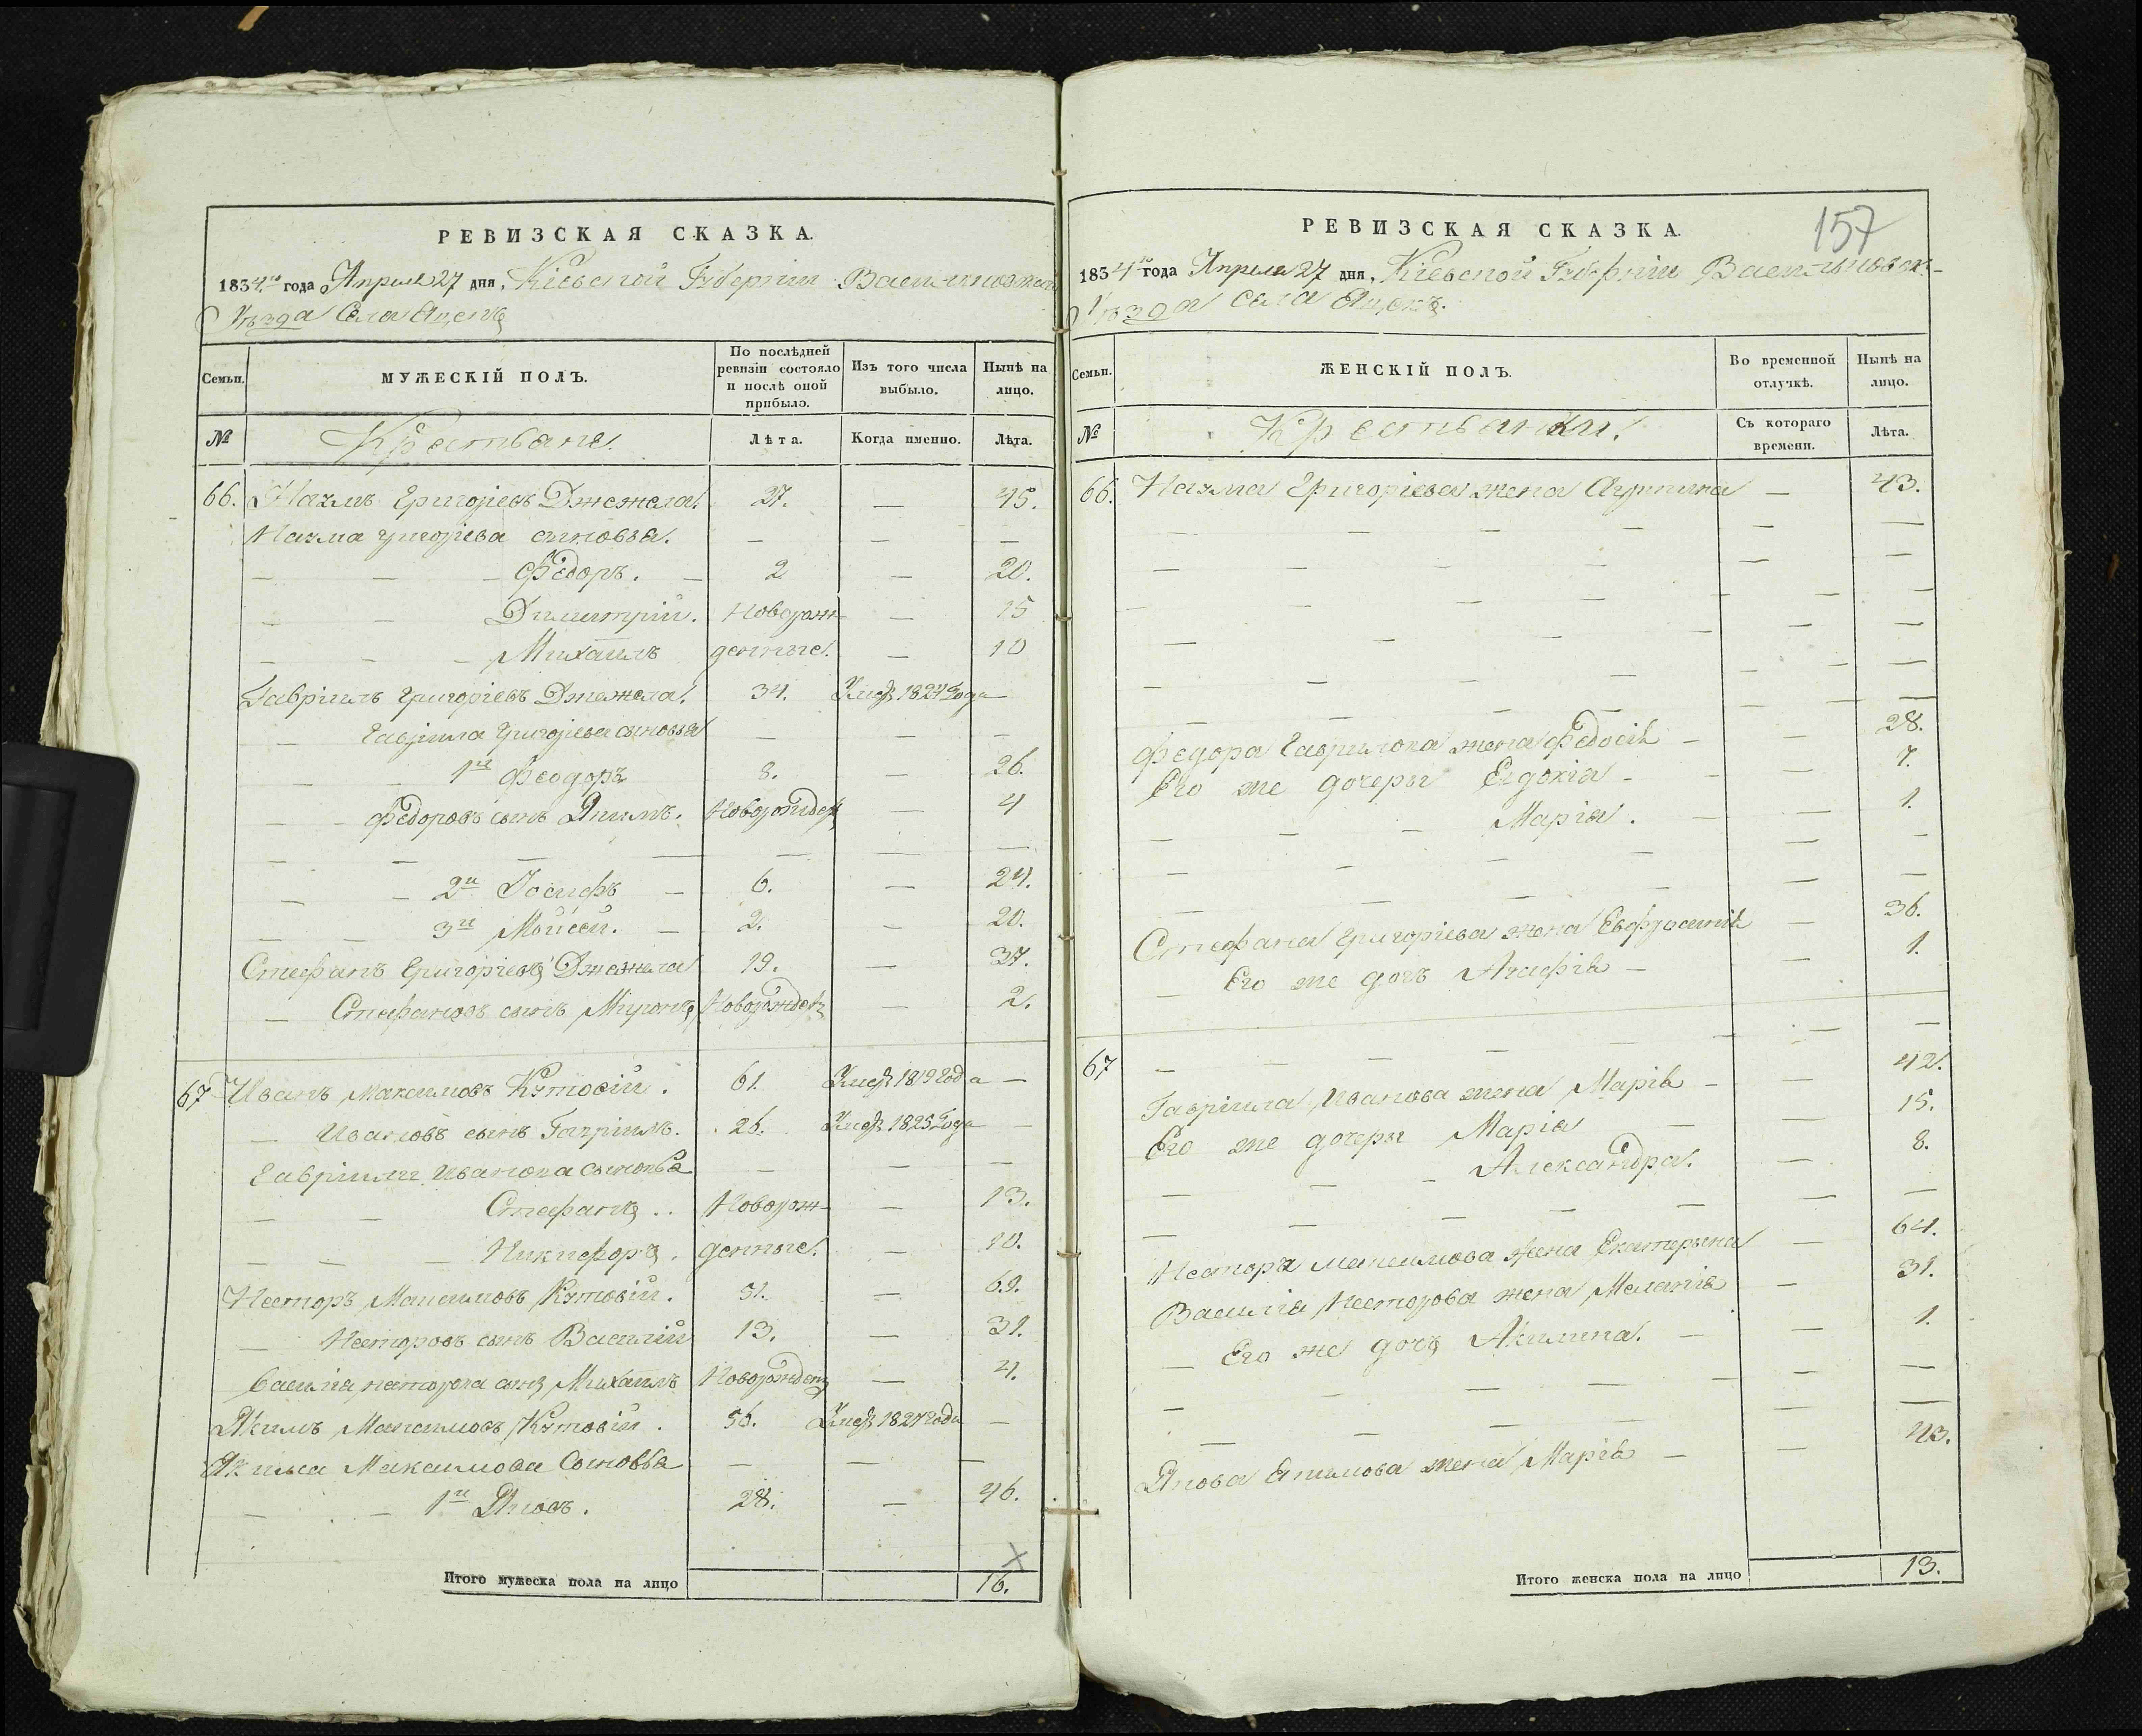 РЕВИЗСКАЯ СКАЗКА.
1834го года Апреля 27 дня, Кіевской Губерніи Васильковскаго
Уѣзда Села Яцекъ
Семьи.
МУЖЕСКІЙ ПОЛЪ.
По послѣдней ревизіи состояло и послѣ оной прибыло.
Изъ того числа выбыло.
Нынѣ на лицо.
№
Крестьяне.
Лѣта.
Когда именно.
Лѣта.
66. Наумъ Григоріевъ Джежела. 27. — 45.
Наума Григоріева сыновья. — — —
— — — Федоръ. — 2 — 20.
— — Димитрій. Новорож- — 15
— — — Михаилъ денные. — 10
Гавріилъ Григоріевъ Джежела. 34. Умеръ 1824 Года —
— Гавріила Григоріева сыновья — — —
— — 1й Феодоръ 8. — 26.
— — Федоровъ сынъ Якимъ. Новорожден — 4
— — — — — — —
— — 2й Іосифъ — 6. — 24.
— — 3й Мойсей. — 2. — 20.
Стефанъ Григоріевъ Джежела 19. — 37.
— Стефановъ сынъ Миронъ Новорожденъ — 2.
67 Иванъ Максимовъ Кутовій. 61. Умеръ 1819 Года —
— Ивановъ сынъ Гавріилъ. 26. Умеръ 1825 Года —
Гавріила Иванова сыновья — — —
— — Стефанъ .. Новорож- — 13.
— — — Никифоръ. денные. — 10.
Несторъ Максимовъ Кутовій. 51. — 69.
— Несторовъ сынъ Василій 13. — 31.
Василія Несторова сынъ Михаилъ Новорожденъ — 4.
Якимъ Максимовъ Кутовій. 56. Умеръ 1827 Года —
Якима Максимова Сыновья — — —
— — 1й Яковъ. 28. — 46.
Итого мужеска пола на лицо 16.
157
РЕВИЗСКАЯ СКАЗКА.
1834го года Апреля 27 дня, Кіевской Губерніи Васильковск-
Уѣзда села Яцекъ.
Семьи.
ЖЕНСКІЙ ПОЛЪ.
Во временной отлучкѣ.
Нынѣ на лицо.
№
Крестьянки.
Съ котораго времени.
Лѣта.
66. Наума Григоріева жена Агрипина — 43.
Федора Гаврилова жена Федосія — — 28.
Его же дочеры Евдокія — — — 7.
— — — Марія. — — 1.
Стефана Григоріева жена Евфросинія — 36.
— Его же дочъ Агафія — — 1.
67 — — — — — — —
Гавріила Иванова жена Марія — — 42.
Его же дочеры Марія — — 15.
— — — Александра. — 8.
Нестора Максимова жена Екатерына — 64.
Василія Несторова жена Меланія — 31.
— Его же дочъ Акилина. — — 1.
Якова Якимова жена Марія — — 43.
Итого женска пола на лицо 13.